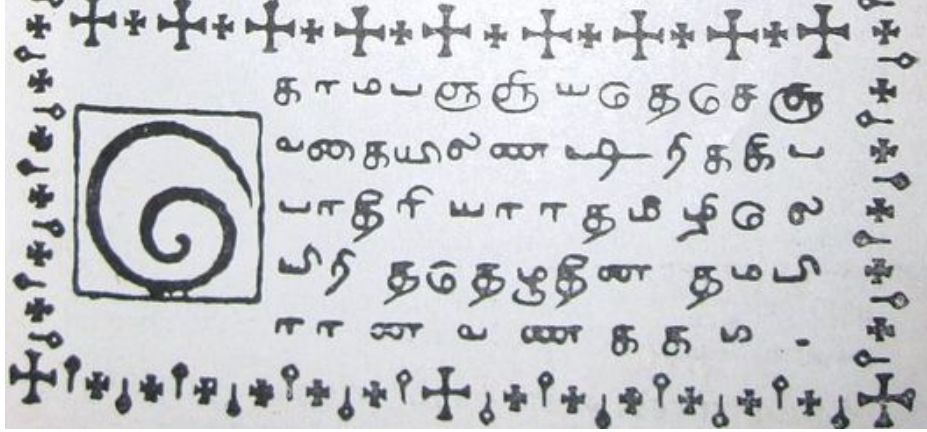 கொமபஞஞிய தெசெசூ
வகையிலண டிரிககிப
பாதிரியார தமிழிலெ
பிரி ததெழுதின தமபி
ரான வணககம .